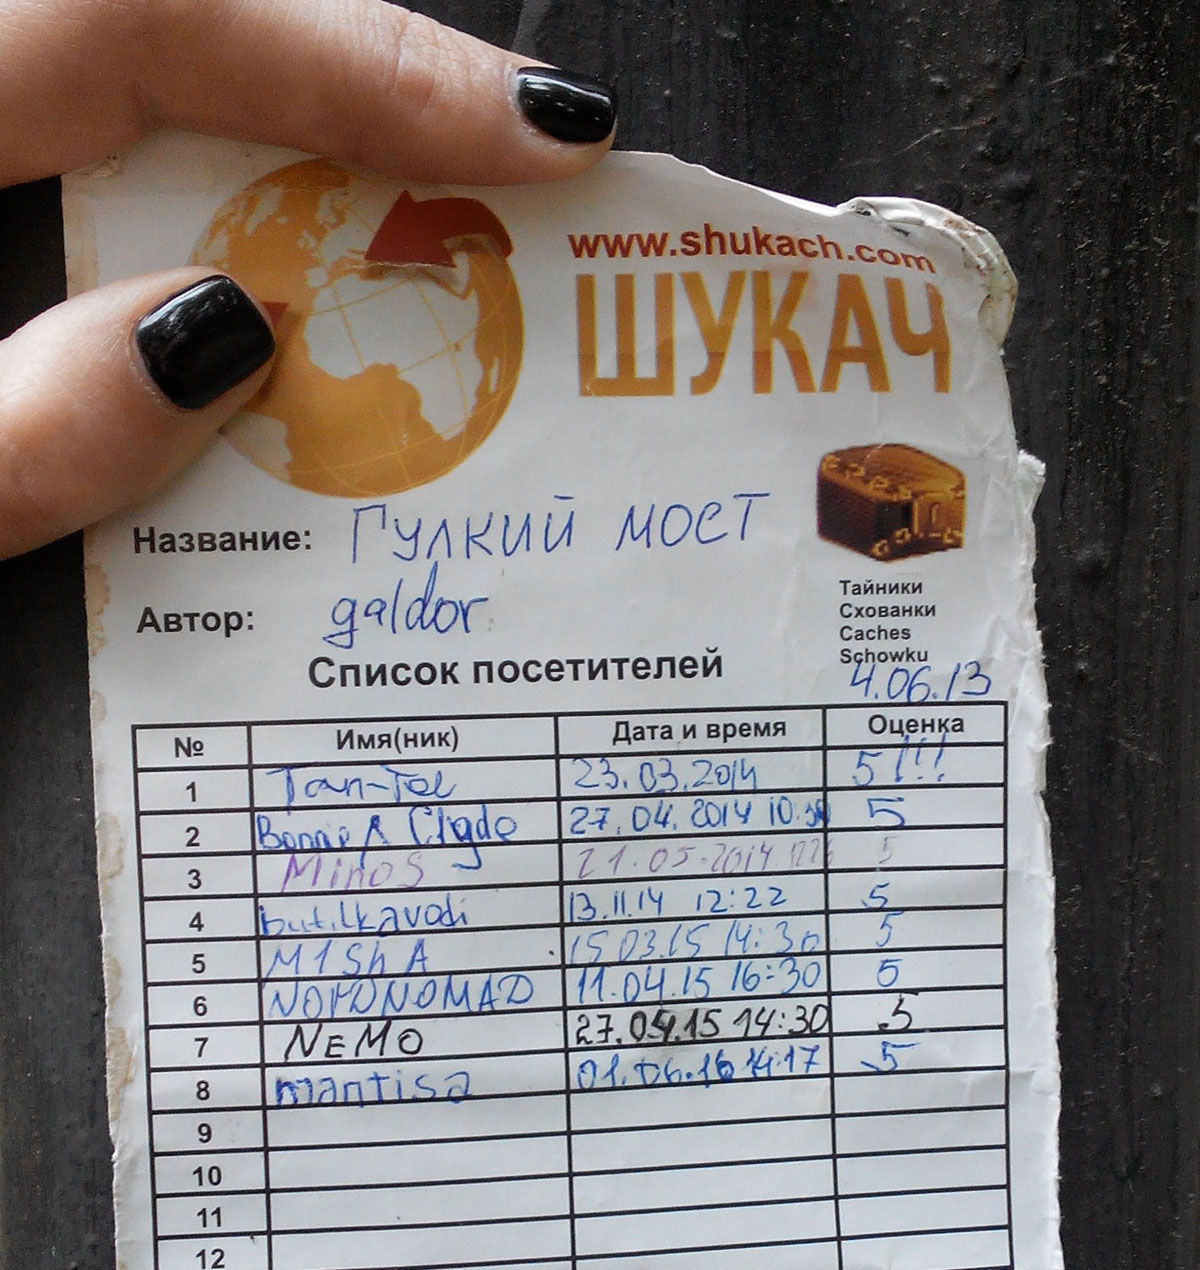 www.shukach.com
ШУКАЧ
Название: Гулкий мост
Автор: galdor
Тайники
Схованки
Caches
Schowku
Список посетителей
4.06.13
№ Имя(ник) Дата и время Оценка
1 Tan-Tol 23.03.2014 5!!!
2 Bonnie & Clyde 27.04.2014 5
3 Minos 21.05.2014 5
4 butilkavodi 13.11.14 12:22 5
5 M1ShA 15.03.15 14:30 5
6 11.04.15 16:30 5
7 NEMO 27.04.15 14:30 5
8 mantisa 01.06.16 14:17 5
9
10
11
12